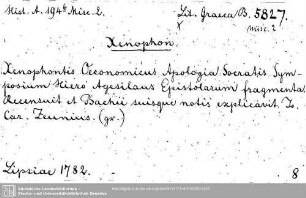 Hist. A. 194 b Misc. 2.
Lit. Graeca B. 5827.
misc. 2
Xenophon.
Xenophontis Oeconomicus Apologia Socratis Sym-
posium Hiero Agesilaus Epistolarum fragmenta.
Recensuit et Bachii suisque notis explicavit. Io.
Car. Zeunius. (gr.)
Lipsiae 1782.
8